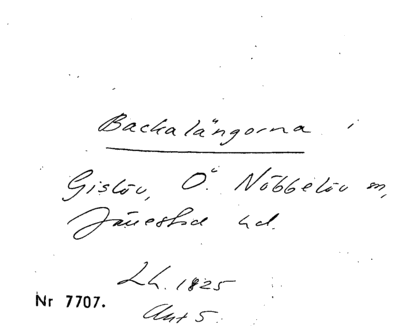 Backalängorna i
Gislöv, Ö. Nöbbelöv sn,
Järrestad hd.
Lh. 1825
Nr 7707.
Akt 5.